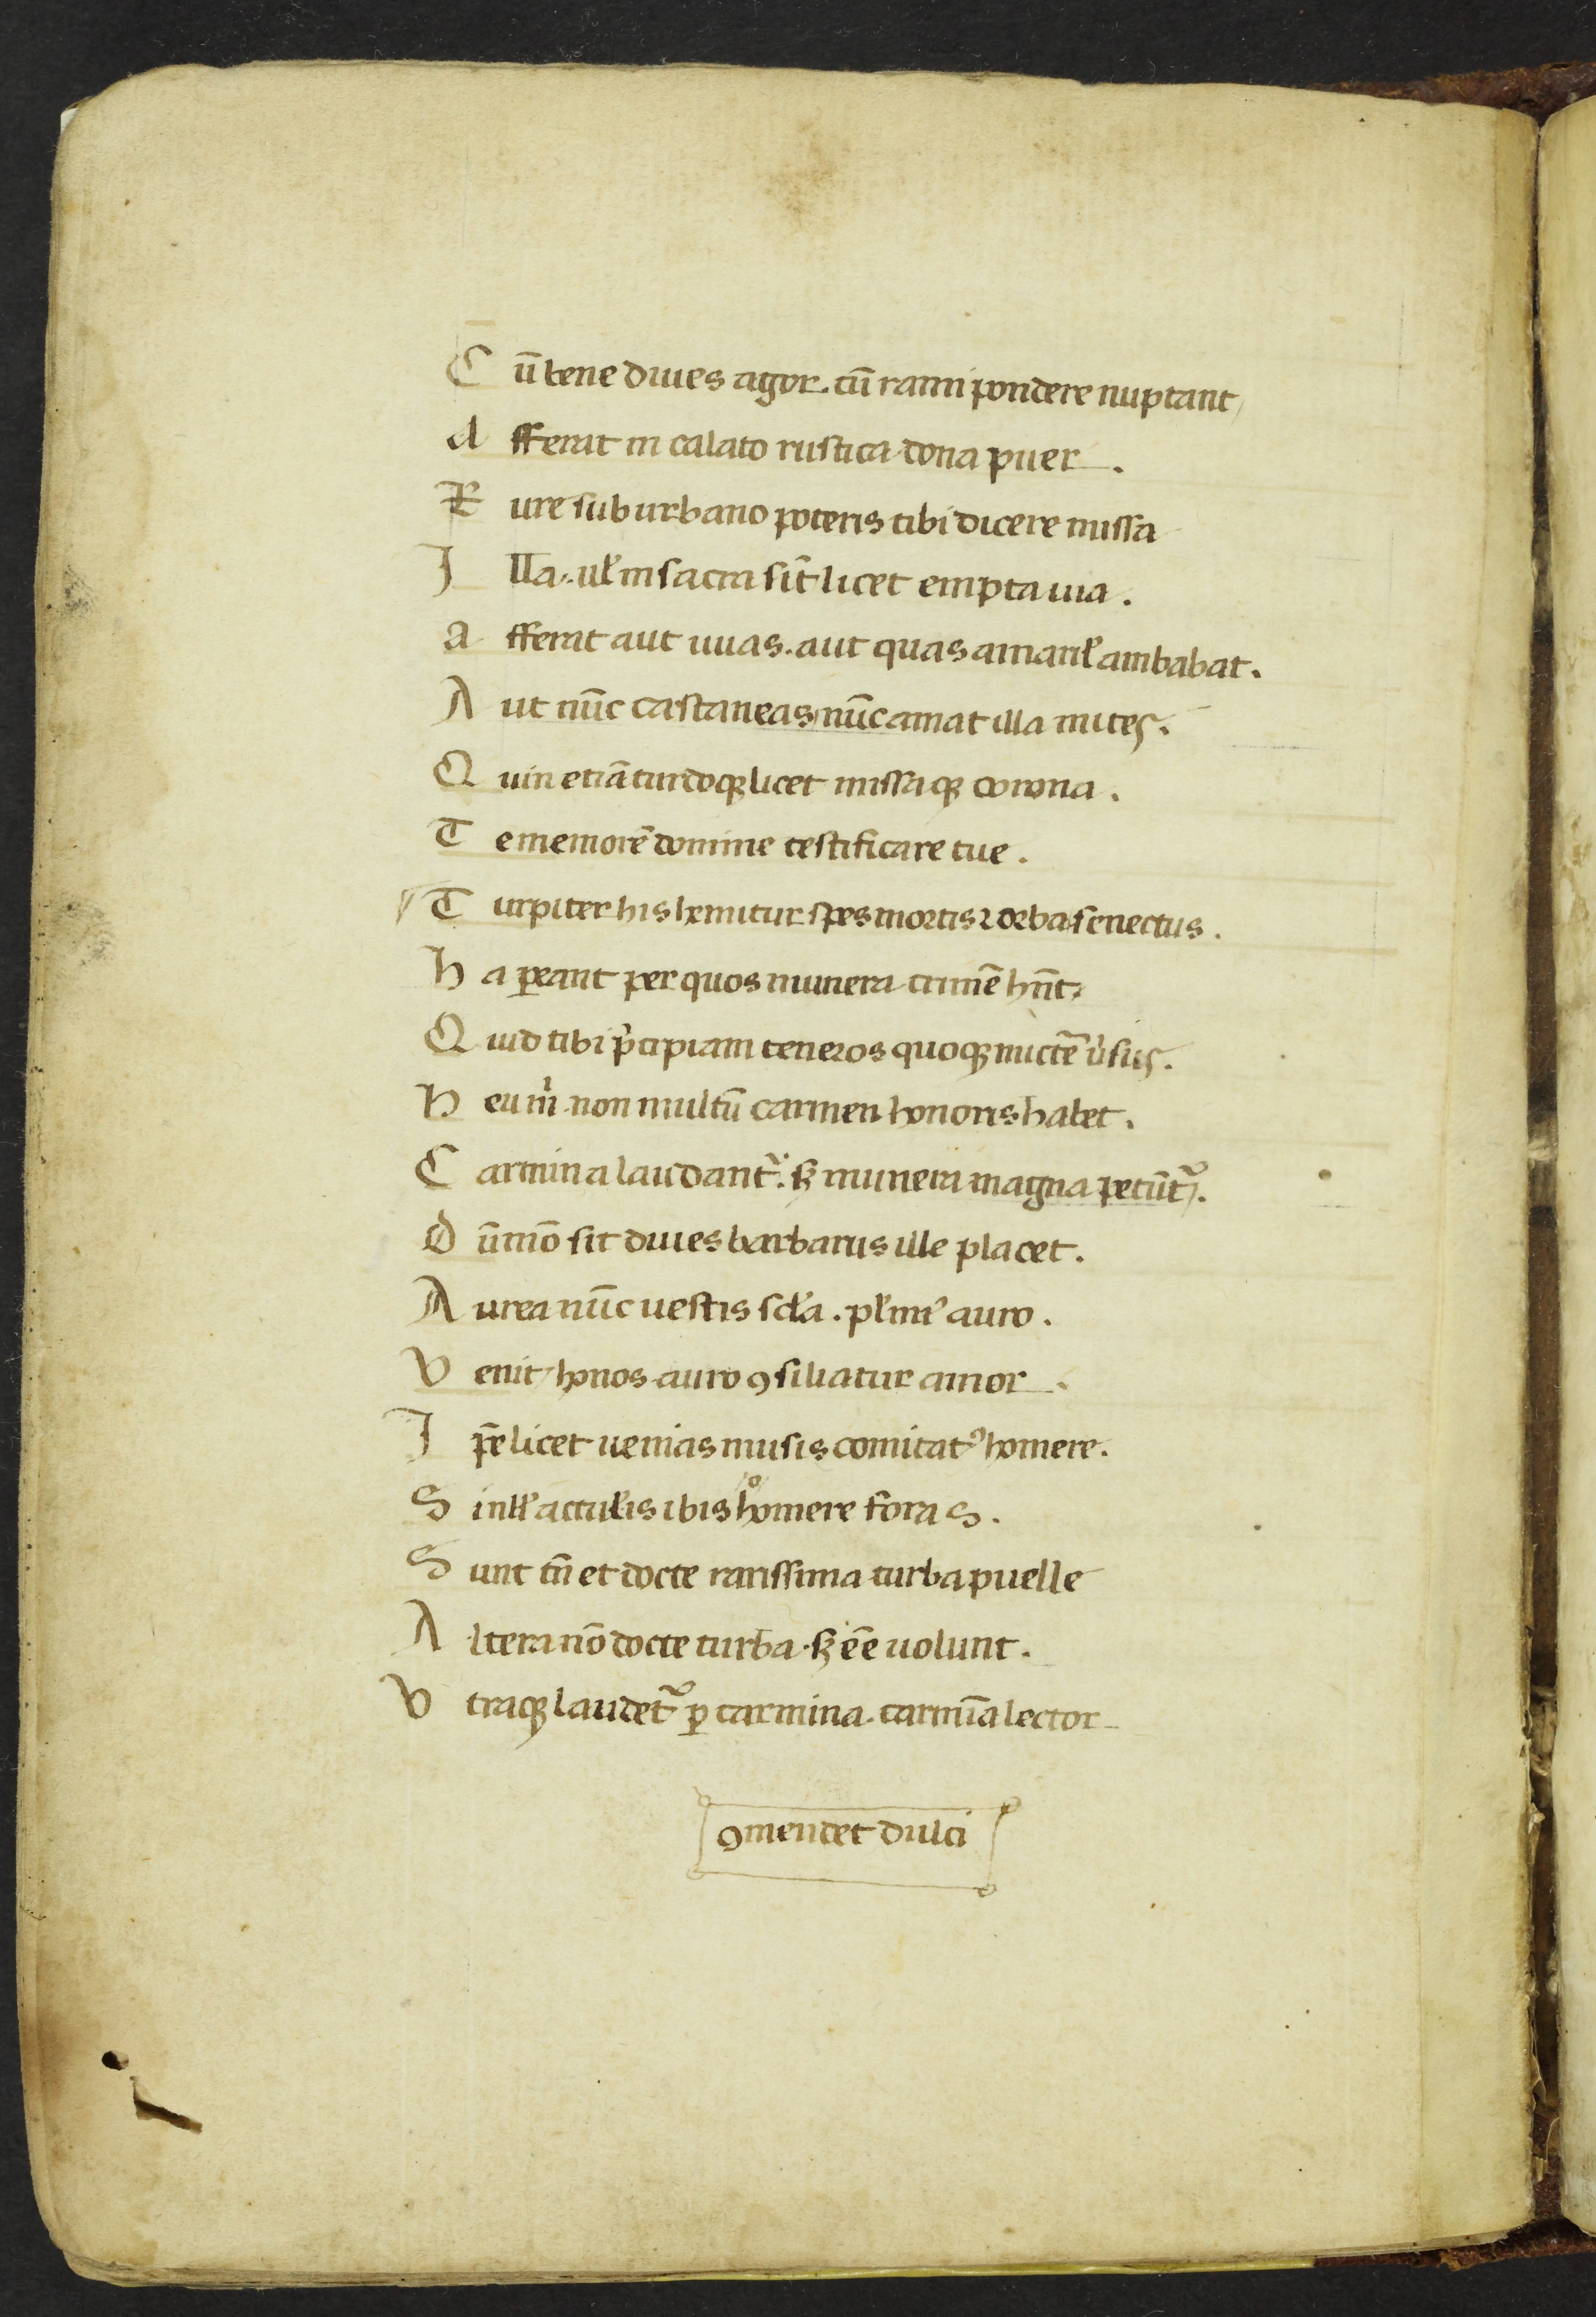 C ū bene diues agor. cū rami pondere nuptant
A fferat in calato rustica dona puer.
R ure suburbano poteris tibi dicere missa
I lla. ul' in sacra sīt licet empta uia.
a fferat aut uuas. aut quas amaril' ambabat.
A ut nūc castaneas nūc amat illa nuces.
Q uin etiā turdoqꝫ licet missaqꝫ corona.
T e memorē domine testificare tue.
T urpiter his hemitur spes mortis ⁊ orba senectus.
H a ꝑeant per quos munera crimē hn̄t.
Q uid tibi p̄cipiam teneros quoqꝫ mictē ūsus.
H eu m̄ non multū carmen honoris habet.
C armina laudant᷑. sꝫ munera magna petūt᷑.
D ūmō sit diues barbarus ille placet.
A urea nūc uestis scl'a. pl'im' auro.
V enit honos auro ꝯsiliatur amor.
I p̄e licet uenias musis comitatꝰ homere.
S i nll' actul'is ibis homere foras.
S unt tn̄ et docte rarissima turba puelle
A ltera nō docte turba. sꝫ eē uolunt.
V traqꝫ laudet᷑ ꝑ carmina. carmīa lector
ꝯmendet dulci